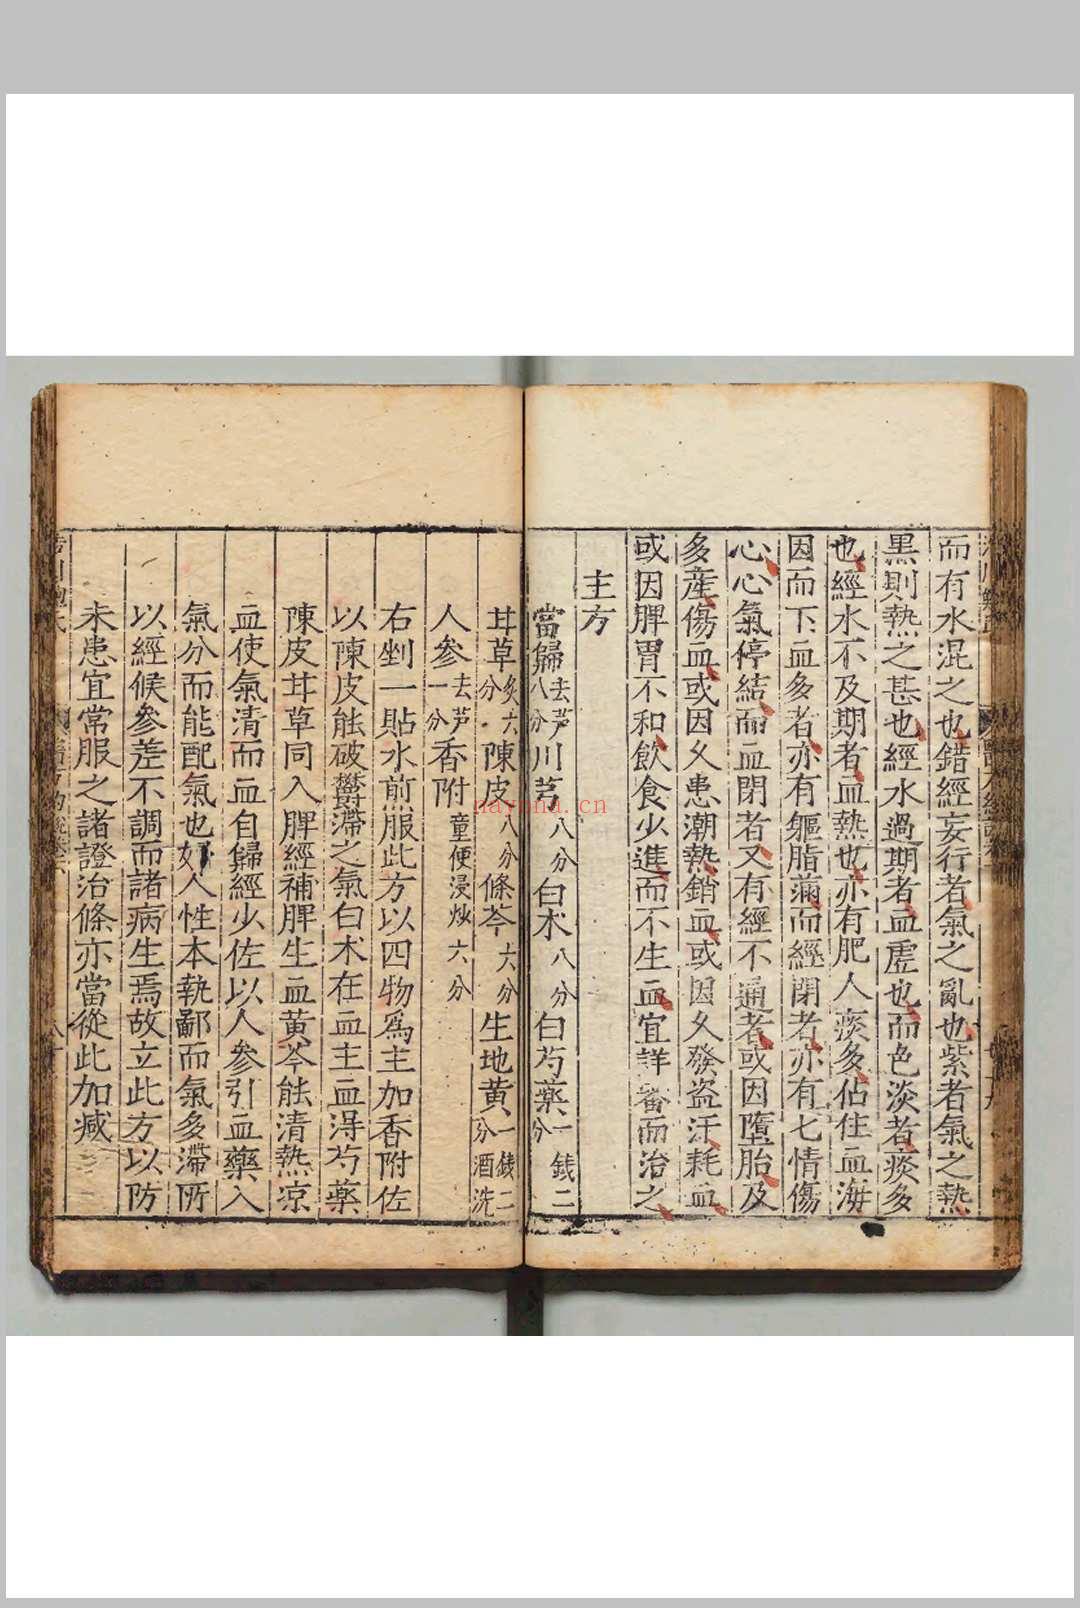 而有水混之也錯經妄行者氣之亂也紫者氣之熱
黑則熱之甚也經水過期者血虛也而色淡者痰多
也經水不及期者血熱也亦有肥人痰多佔住血海
因而下血多者亦有軀脂滿而經閉者亦有七情傷
心心氣停結而血閉者又有經不通者或因墮胎及
多產傷血或因久患潮熱銷血或因久發盜汗耗血
或因脾胃不和飲食少進而不生血宜詳審而治之
主方
當歸去芦八分川芎八分白朮八分白芍藥一錢二分
甘草炙六分陳皮八分條芩六分生地黃一錢二分酒洗
人參去芦一分香附童便浸炒六分
右剉一貼水煎服此方以四物為主加香附佐
以陳皮能破鬱滯之氣白朮在血主血得芍藥
陳皮甘草同入脾經補脾生血黃芩能清熱凉
血使氣清而血自歸經少佐以人參引血藥入
氣分而能配氣也婦人性本執鄙而氣多滯所
以經候參差不調而諸病生焉故立此方以防
未患宜常服之諸證治條亦當從此加減
nayona.cn